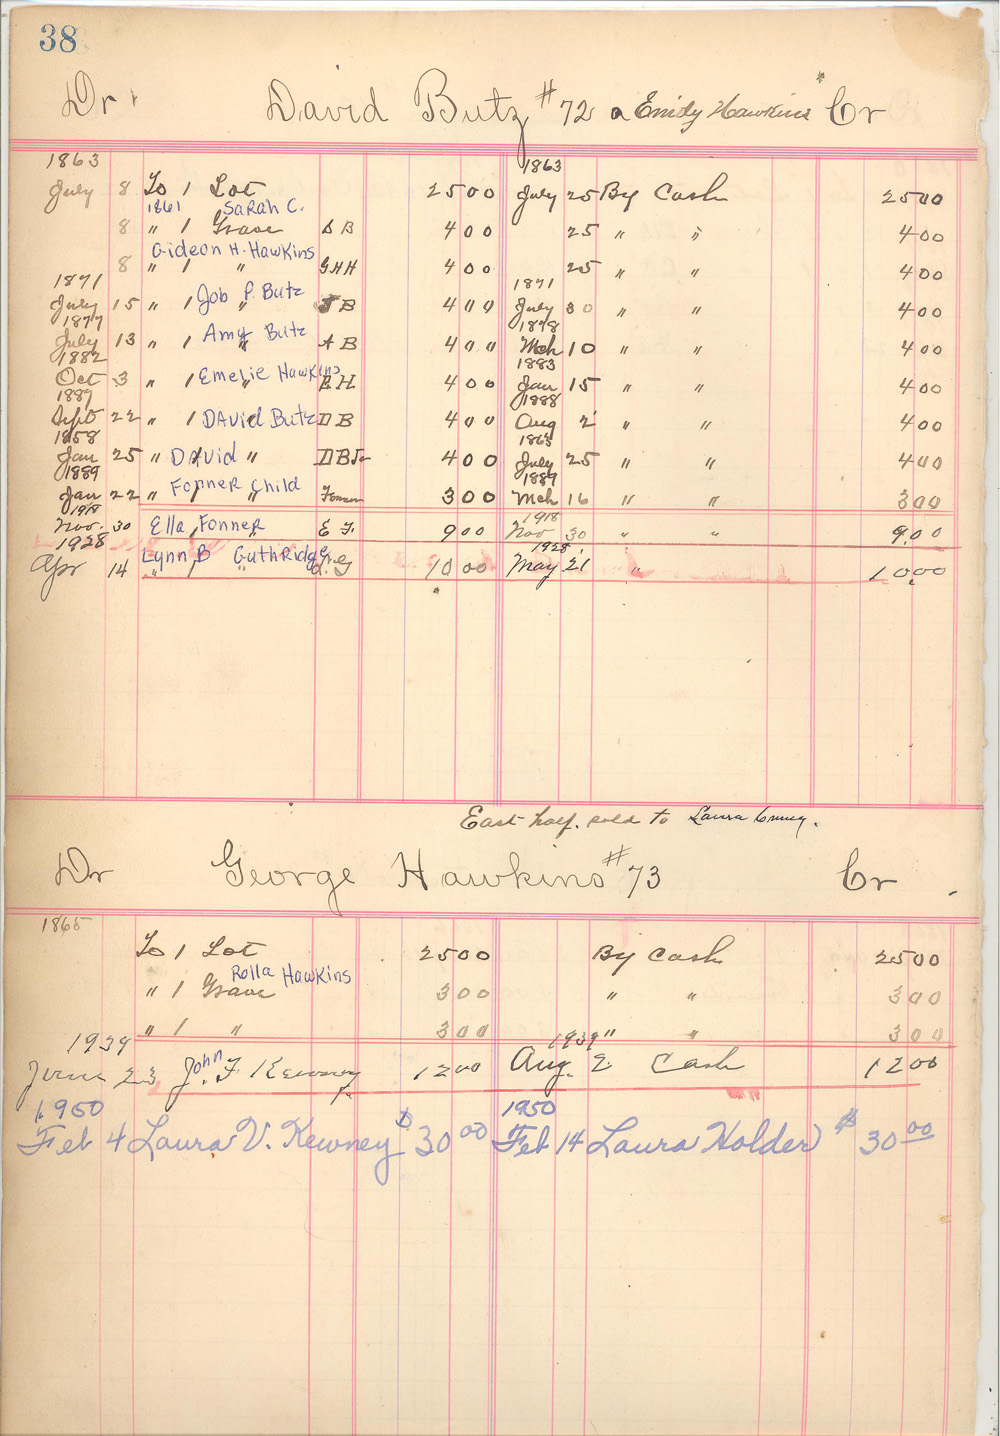 38
Dr David Butz #72 Emidy Hawkins Cr
1863 1863
July 8 To 1 Lot 25 00 July 25 By Cash 25 00
1861 Sarah C.
8 " 1 Grave S B 4 00 25 " " 4 00
Gideon H. Hawkins
8 " 1 " G H H 4 00 25 " " 4 00
1871 1871
July 15 " 1 Job P. Butz " J B 4 00 July 30 " " 4 00
1877 1878
July 13 " 1 Amy Butz " A B 4 00 Mch 10 " " 4 00
1882 1883
Oct 3 " 1 Emelie Hawkins " E H. 4 00 Jan 15 " " 4 00
1887 1888
Sept 22 " 1 David Butz D B 4 00 Aug 2 " " 4 00
1858 1863
Jan 25 " David " D B Jr 4 00 July 25 " " 4 00
1889 1889
Jan 22 " Fonner Child Fonner 3 00 Mch 16 " " 3 00
1918 1918
Nov. 30 Ella Fonner E F. 9 00 Nov 30 " " 9.00
1928 1928
Apr 14 Lynn B Guthridge 10 00 May 21 " 10.00
East half. sold to Laura
Dr George Hawkins #73 Cr
1865
To 1 Lot 25 00 By Cash 25 00
Rolla Hawkins
" 1 Grave 3 00 " " 3 00
" 1 " 3 00 " " 3 00
1939 1939
June 23 John F. Kewney 12 00 Aug. 2 Cash 12 00
1950 1950
Feb 4 Laura V. Kewney $ 30 00 Feb 14 Laura Holder $ 30 00